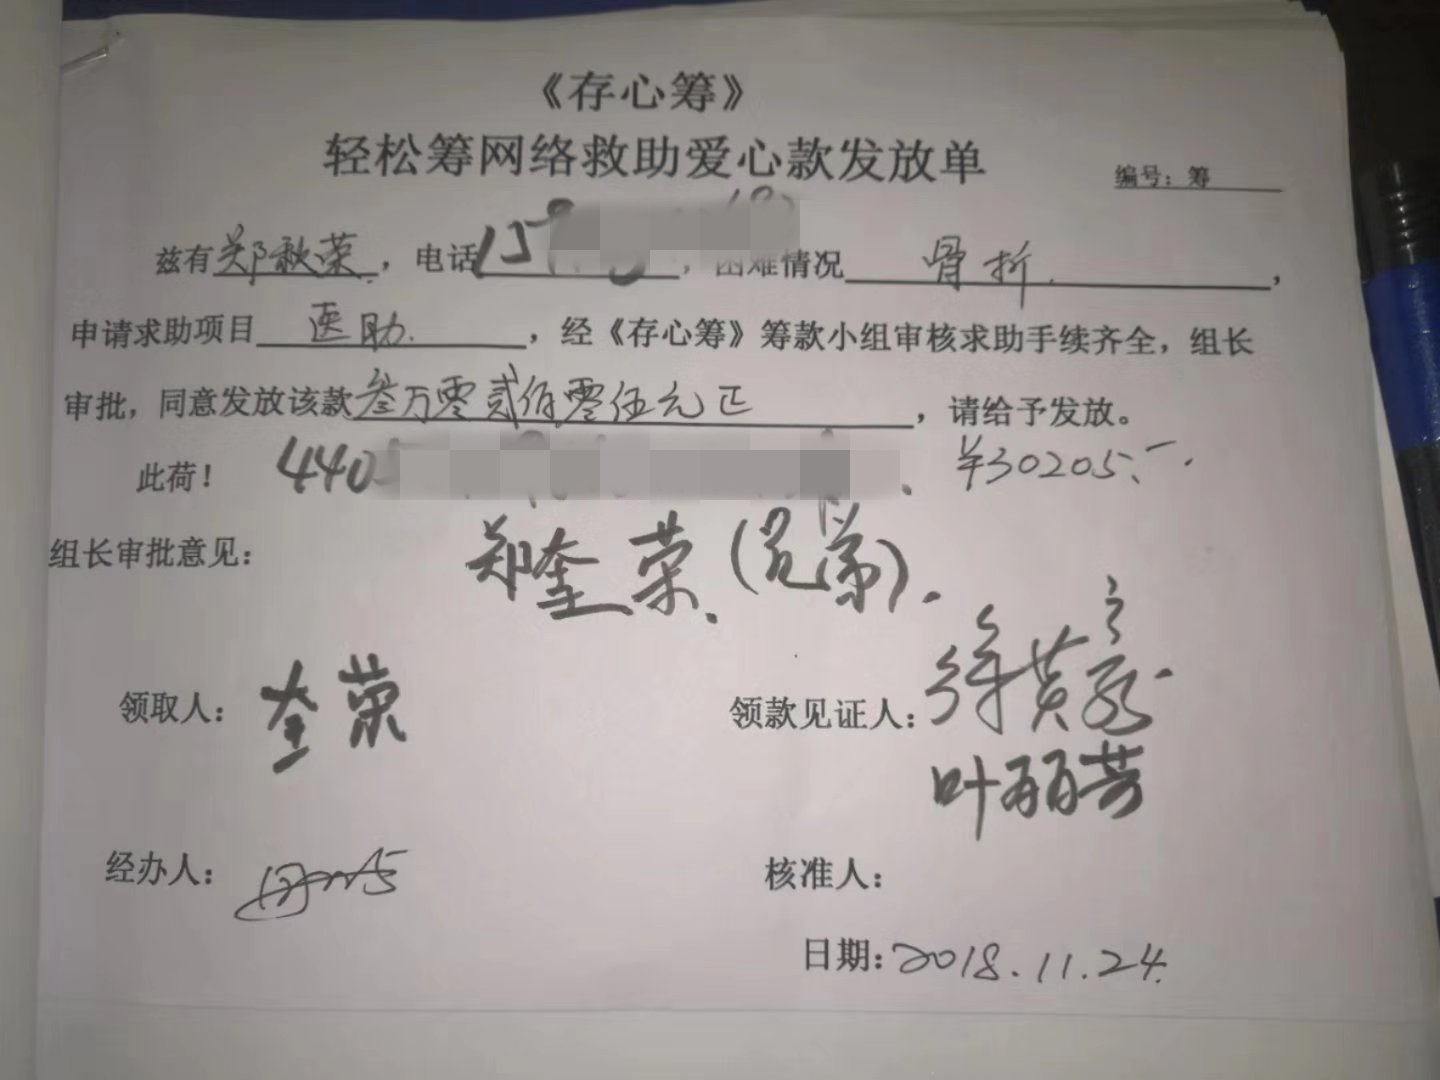 《存心筹》
轻松筹网络救助爱心款发放单
编号：筹
兹有郑秋荣，电话159，困难情况骨折，
申请求助项目医助，经《存心筹》筹款小组审核求助手续齐全，组长
审批，同意发放该款叁万零贰佰零伍元正，请给予发放。
此荷！4405 ¥30205.-
组长审批意见：郑奎荣（兄弟）.
领取人：奎荣
领款见证人：徐黄
叶丽芳
经办人：
核准人：
日期：2018.11.24.